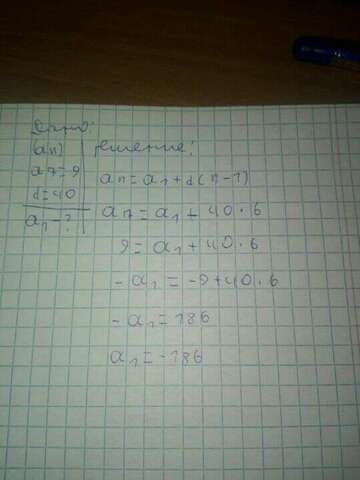 Дано:
(an)
a7=9
d=40
a1-?
решение:
an=a1+d(n-1)
a7=a1+40·6
9=a1+40·6
-a1=-9+40·6
-a1=186
a1=-186